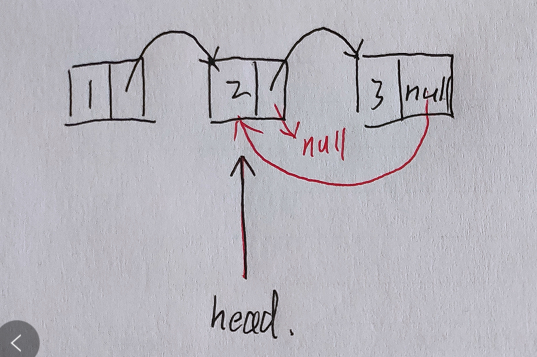 1 2 3 null
null
head.